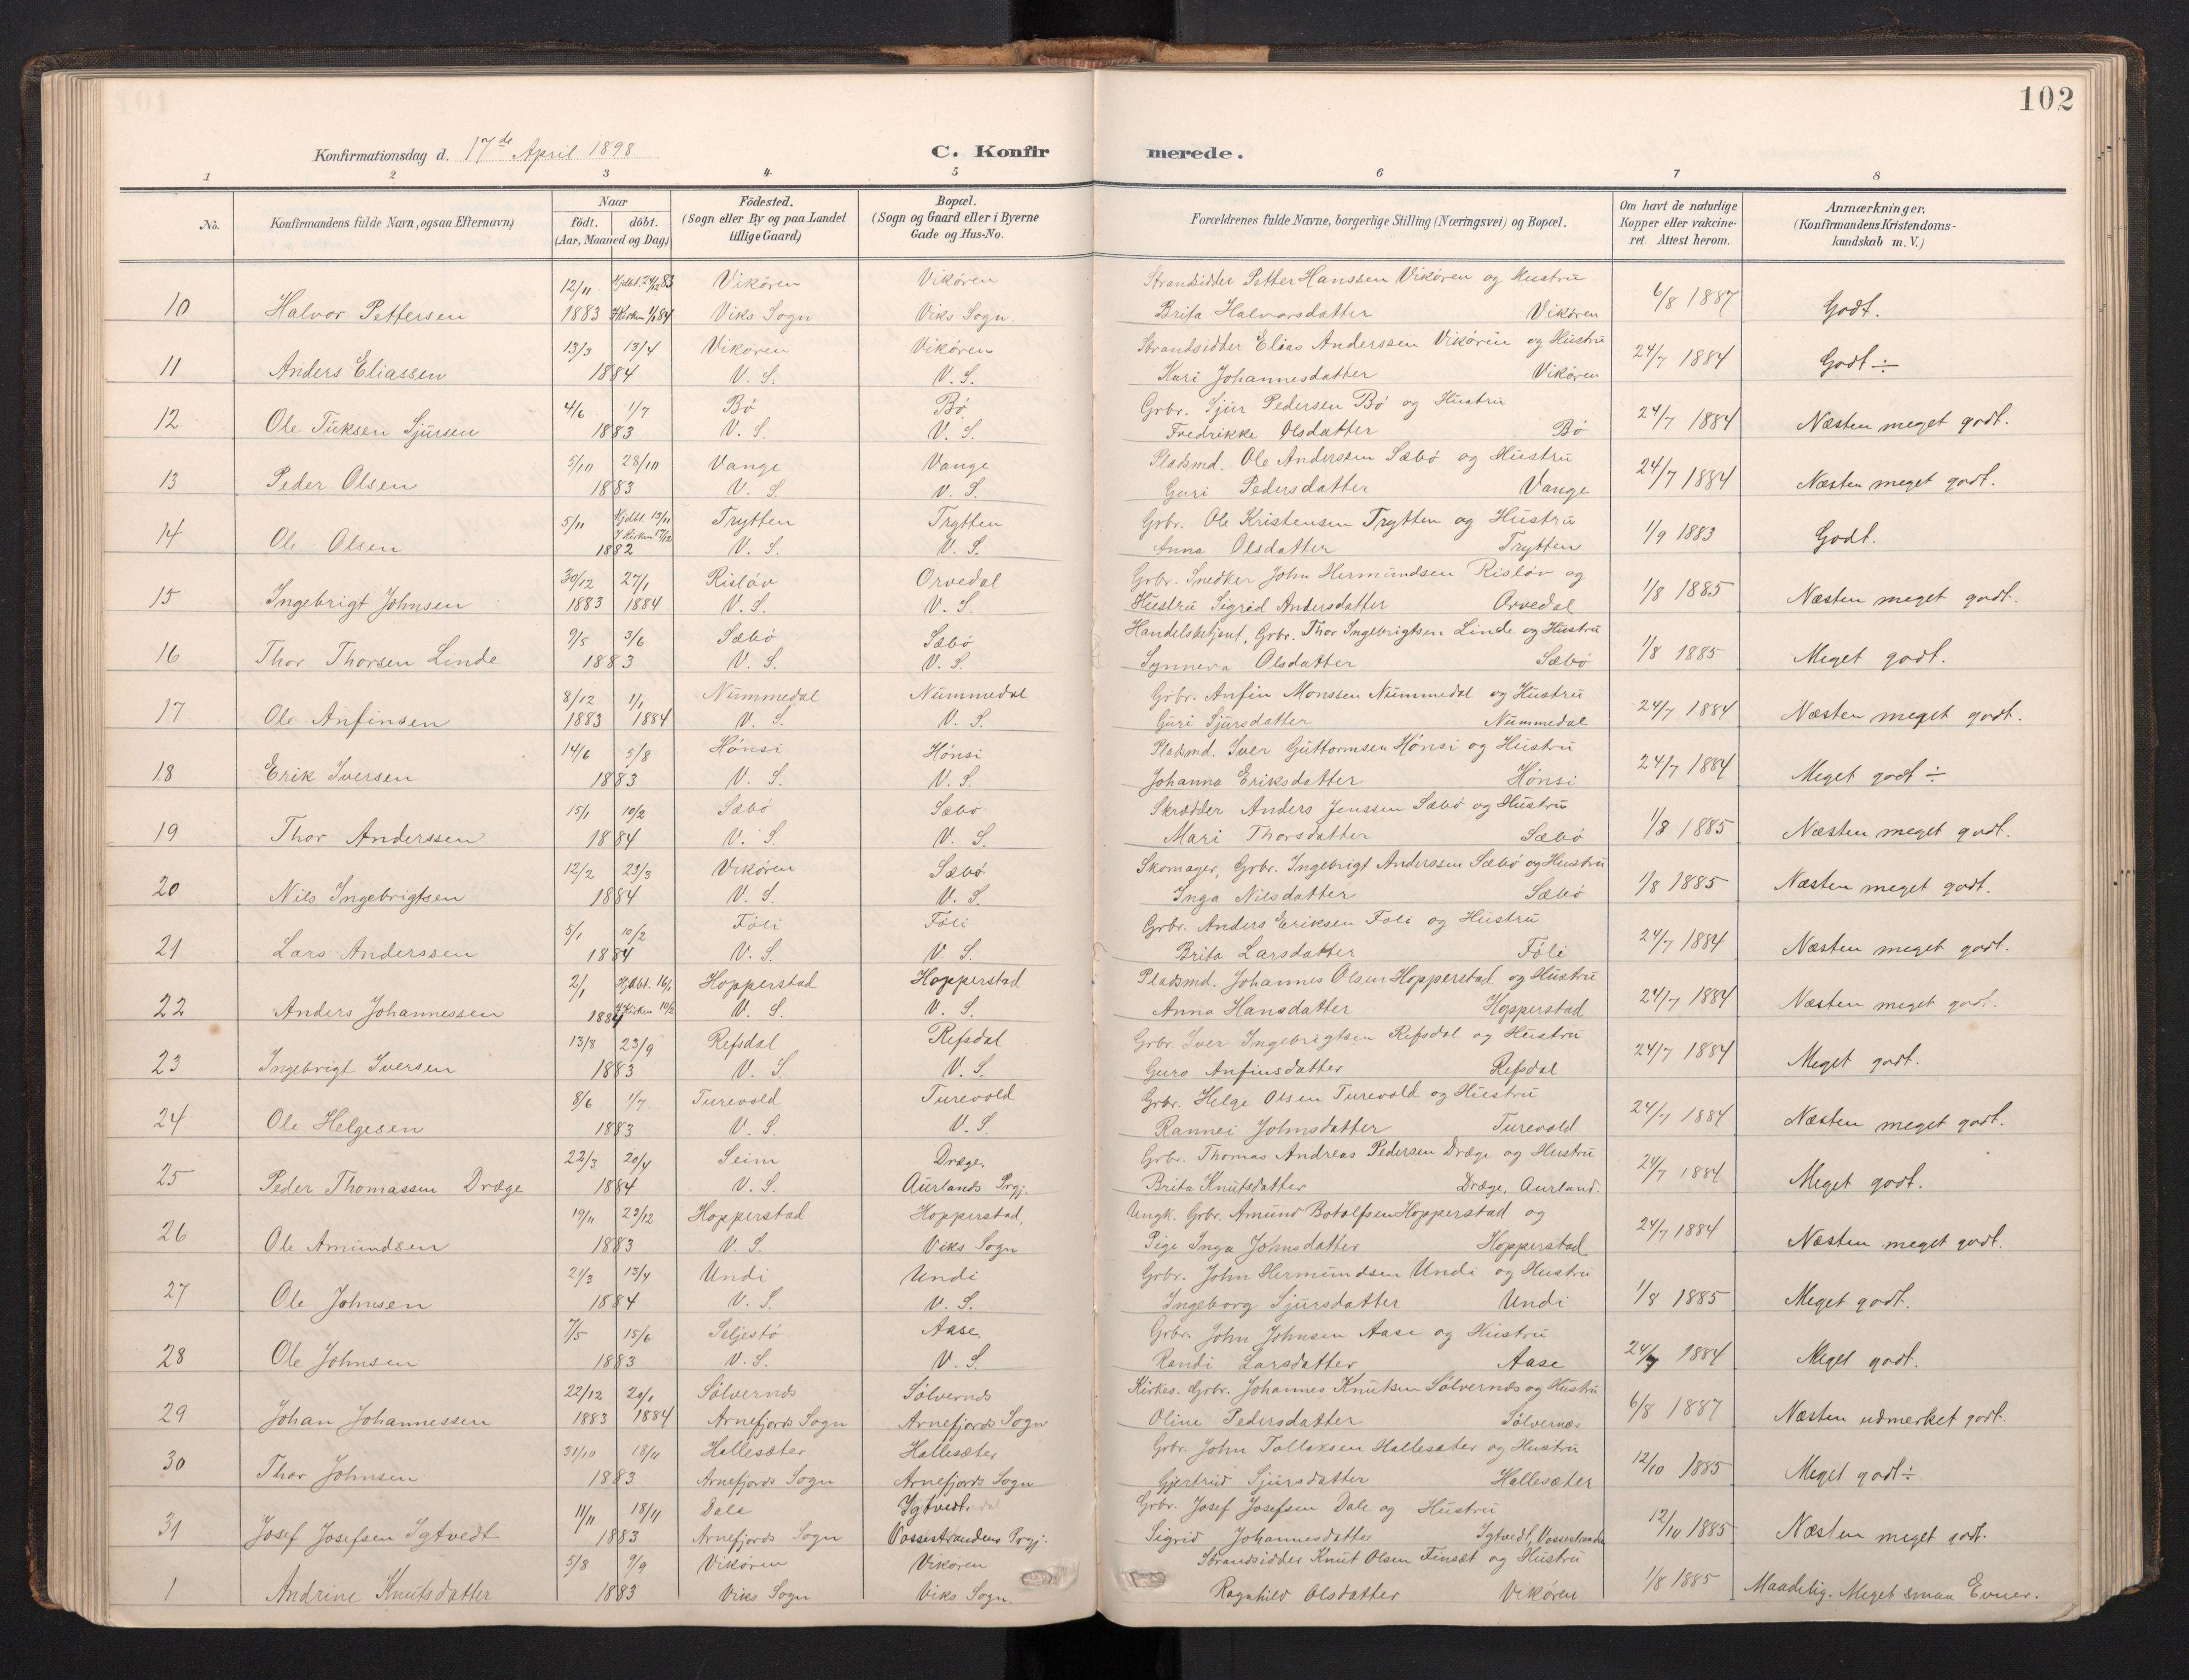 102
Konfirmationsdag d. 17de April 1898
C. Konfirmerede.
1 2 3 4 5 6 7 8
No. | Konfirmandens fulde Navn, ogsaa Efternavn) | Naar født. døbt. (Aar, Maaned og Dag) | Fødested. (Sogn eller By og paa Landet tillige Gaard) | Bopæl. (Sogn og Gaard eller i Byerne Gade og Hus-No. | Forældrenes fulde Navne, borgerlige Stilling (Næringsvei) og Bopæl. | Om havt de naturlige Kopper eller vakcineret. Attest herom. | Anmærkninger. (Konfirmandens Kristendomskundskab m. V.)
12/11 Hjdbt. 24/12 83 Vikøren Vikøren Strandsidder Petter Hanssen Vikøren og Hustru
10 Halvor Pettersen 1883 I Kirken 1/1 84 Viks Sogn Viks Sogn. Brita Halvorsdatter Vikøren 6/8 1887 Godt.
13/3 13/4 Vikøren Vikøren Strandsidder Elias Anderssen Vikøren og Hustru
11 Anders Eliassen 1884 V. S. V. S. Kari Johannesdatter Vikøren 24/7 1884 Godt ÷
4/6 1/7 Bø Bø Grbr. Sjur Pedersen Bø og Hustru
12 Ole Tuksen Sjursen 1883 V. S. V. S. Fredrikke Olsdatter Bø 24/7 1884 Næsten meget godt.
5/10 28/10 Vange Vange Pladsmd. Ole Anderssen Sæbø og Hustru
13 Peder Olsen 1883 V. S. V. S. Guri Pedersdatter Vange 24/7 1884 Næsten meget godt.
5/11 Hjdbt. 13/11 Trytten Trytten Grbr. Ole Kristensen Trytten og Hustru
14 Ole Olsen 1882 I Kirken 17/12 V. S. V. S. Anna Olsdatter Trytten 1/9 1883 Godt.
30/12 27/1 Risløv Orvedal Grbr. Snedker John Hermundsen Risløv og
15 Ingebrigt Johnsen 1883 1884 V. S. V. S. Hustru Sigrid Andersdatter Orvedal 1/8 1885 Næsten meget godt.
9/5 3/6 Sæbø Sæbø Handelsbetjent, Grbr. Thor Ingebrigtsen Linde og Hustru
16 Thor Thorsen Linde 1883 V. S. V. S. Synneva Olsdatter Sæbø 1/8 1885 Meget godt.
8/12 1/1 Nummedal Nummedal Grbr. Anfin Monssen Nummedal og Hustru
17 Ole Anfinsen 1883 1884 V. S. V. S. Guri Sjursdatter Nummedal 24/7 1884 Næsten meget godt.
14/6 5/8 Hønsi Hønsi Pladsmd. Iver Guttormsen Hønsi og Hustru
18 Erik Iversen 1883 V. S. V. S. Johanna Eriksdatter Hønsi 24/7 1884 Meget godt ÷
15/1 10/2 Sæbø Sæbø Skrædder Anders Jenssen Sæbø og Hustru
19 Thor Anderssen 1884 V. S. V. S. Mari Thorsdatter Sæbø 1/8 1885 Næsten meget godt.
12/2 23/3 Vikøren Sæbø Skomager, Grbr. Ingebrigt Anderssen Sæbø og Hustru
20 Nils Ingebrigtsen 1884 V. S. V. S. Inga Nilsdatter Sæbø 1/8 1885 Næsten meget godt.
5/1 10/2 Føli Føli Grbr. Anders Eriksen Føli og Hustru
21 Lars Anderssen 1884 V. S. V. S. Brita Larsdatter Føli 24/7 1884 Næsten meget godt.
2/1 Hjdbt. 16/1 Hopperstad Hopperstad Pladsmd. Johannes Olsen Hopperstad og Hustru
22 Anders Johannessen 1884 I Kirken 10/2 V. S. V. S. Anna Hansdatter Hopperstad 24/7 1884 Næsten meget godt.
13/8 23/9 Refsdal Refsdal Grbr. Iver Ingebrigtsen Refsdal og Hustru
23 Ingebrigt Iversen 1883 V. S. V. S. Guro Anfinsdatter Refsdal 24/7 1884 Meget godt.
8/6 1/7 Turevold Turevold Grbr. Helge Olsen Turevold og Hustru
24 Ole Helgesen 1883 V. S. V. S. Rannei Johnsdatter Turevold 24/7 1884 Næsten meget godt.
22/3 20/4 Seim Dræge, Grbr. Thomas Andreas Pedersen Dræge og Hustru
25 Peder Thomassen Dræge 1884 V. S. Aurlands Prgj. Brita Knutsdatter Dræge, Aurland. 24/7 1884 Meget godt.
19/11 23/12 Hopperstad Hopperstad, Ungk. Grbr. Amund Botolfsen Hopperstad og
26 Ole Amundsen 1883 V. S. Viks Sogn Pige Inga Johnsdatter Hopperstad 24/7 1884 Næsten meget godt.
21/3 13/4 Undi Undi Grbr. John Hermundsen Undi og Hustru
27 Ole Johnsen 1884 V. S. V. S. Ingeborg Sjursdatter Undi 1/8 1885 Meget godt.
7/5 15/6 Seljestø Aase, Grbr. John Johnsen Aase og Hustru
28 Ole Johnsen 1883 V. S. V. S. Randi Larsdatter Aase 24/7 1884 Meget godt.
22/12 20/1 Sølvernes Sølvernes Kirkes. Grbr. Johannes Knutsen Sølvernes og Hustru
29 Johan Johannessen 1883 1884 Arnefjords Sogn Arnefjords Sogn Oline Pedersdatter Sølvernæs 6/8 1887 Næsten udmerket godt.
31/10 18/11 Hallesæter Hallesæter Grbr. John Tollaksen Hallesæter og Hustru
30 Thor Johnsen 1883 Arnefjords Sogn Arnefjords Sogn Gjertrud Sjursdatter Hallesæter 12/10 1885 Meget godt ÷
11/11 18/11 Dale Igtvedt Grbr. Josef Josefsen Dale og Hustru
31 Josef Josefsen Igtvedt 1883 Arnefjords Sogn Vossestrandens Prgj. Sigrid Johannesdatter Igtvedt, Vossestranden 12/10 1885 Næsten meget godt.
5/8 9/9 Vikøren Vikøren Strandsidder Knut Olsen Finsæt og Hustru
1 Andrine Knutsdatter 1883 Viks Sogn Viks Sogn. Ragnhild Olsdatter Vikøren 1/8 1885 Maadelig. Meget smaa Evner.